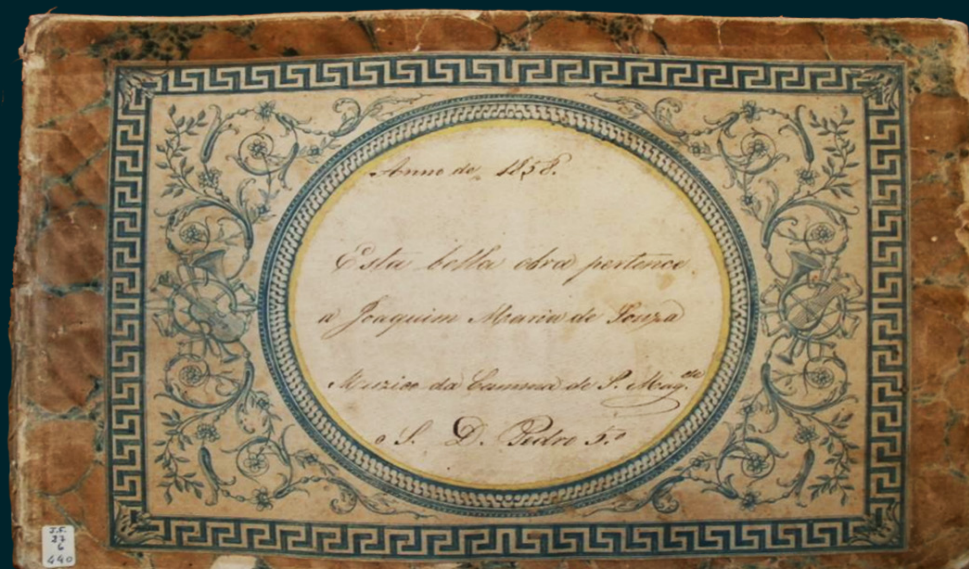 Anno de 1858.
Esta bella obra pertence
a Joaquim Maria de Souza
Muzico da Camera de S. Mag.de
o S. D. Pedro 5.º
J.S.
27
6
440